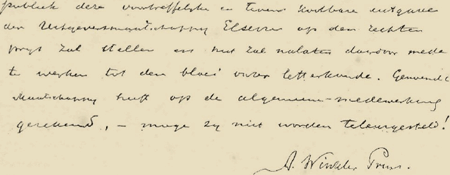 publiek deze voortreffelijke en tevens kostbare uitgave
der Uitgeversmaatschappij Elsevier op den rechten
prijs zal stellen en niet zal nalaten daardoor mede
te werken tot den bloei onzer letterkunde. Genoemde
Maatschappij heeft op de algemeene medewerking
gerekend, – moge zij niet worden teleurgesteld!
A. Winkler Prins.